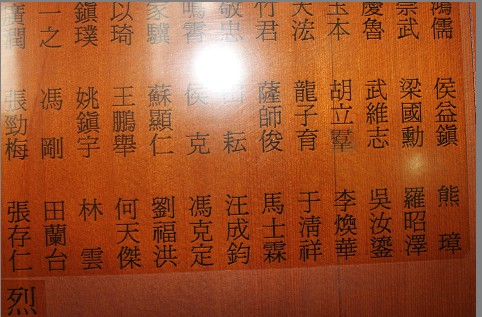 儒 侯益鎮 熊璋
崇武 梁國勳 羅昭澤
慶魯 武維志 吳汝鎏
本 胡立羣 李煥華
浤 龍子育 于清祥
竹君 薩師俊 馬士霖
敬忠 耘 汪成鈞
鳴霄 侯克 馮克定
家驥 蘇顯仁 劉福洪
以琦 王鵬舉 何天傑
鎮璞 姚鎮宇 林雲
一之 馮剛 田蘭台
廣潤 張勁梅 張存仁
烈